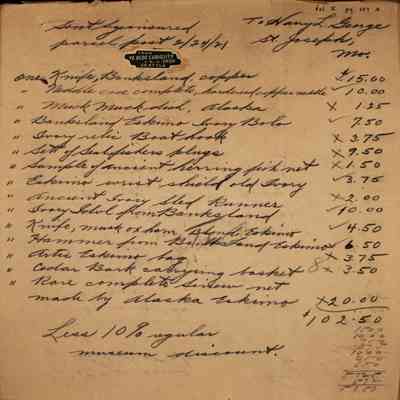 Sent Sponsored
parcel post 2/24/21
To Harry L. George
St. Joseph,
Mo.
FROM
YE OLDE CURIOSITY
SHOP
SEATTLE
one Knife, Banksland, copper $15.00
" Needle case complete, hardened copper needle ✓ 10.00
" Musk Musk dish, Alaska x 1.25
" Banksland Eskimo Ivory Bolo ✓ 7.50
" Ivory relic Boat hook x 3.75
" Set of Sealfishers plugs x 9.50
" Sample of ancient herring fish net x 1.50
" Eskimo wrist shield old Ivory ✓ 3.75
" Ancient Ivory Sled Runner x 2.00
" Ivory Idol from Banksland ✓ 10.00
" Knife, musk ox horn, Blond Eskimo ✓ 4.50
" Hammer from Banksland Eskimo ✓ 6.50
" Artic Eskimo bag x 3.75
" Cedar Bark carrying basket 8 x 3.50
" Rare complete Sinew net
made by Alaska Eskimo x 20.00
$102.50
Less 10% regular
museum discount.